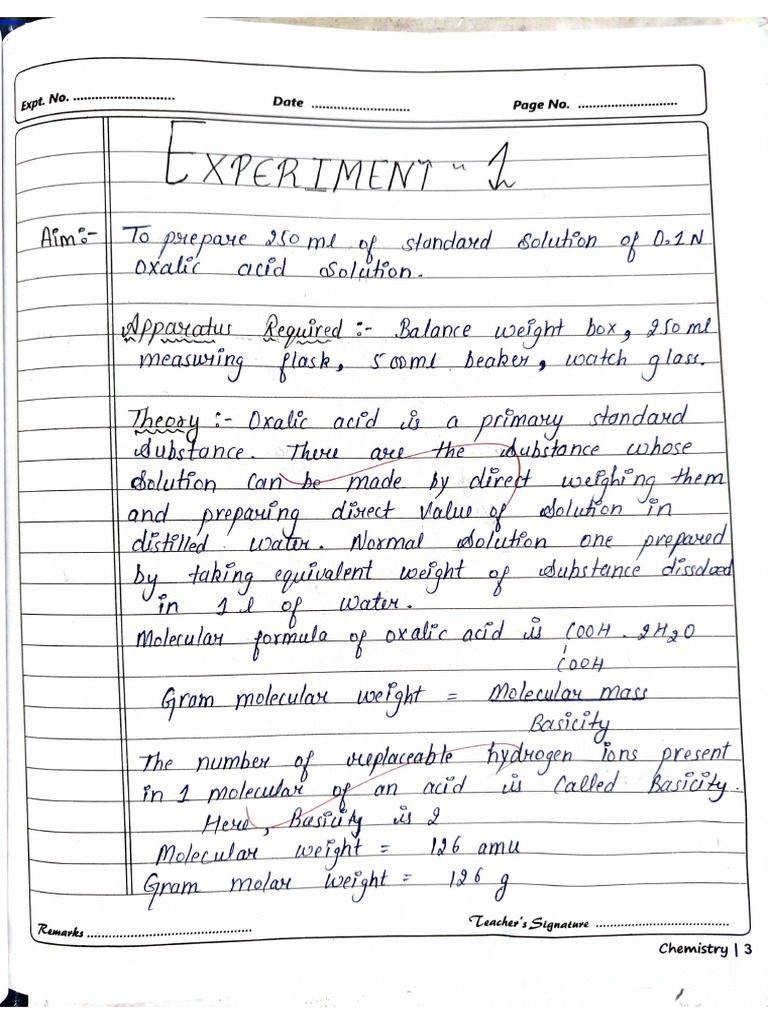 Expt. No. ............................ Date ............................ Page No. ............................
EXPERIMENT - 1
Aim:- To prepare 250 ml of standard solution of 0.1N
oxalic acid solution.
Apparatus Required :- Balance weight box, 250 ml
measuring flask, 500ml beaker, watch glass.
Theory :- Oxalic acid is a primary standard
substance. There are the substance whose
solution can be made by direct weighing them
and preparing direct value of solution in
distilled water. Normal solution one prepared
by taking equivalent weight of substance dissolved
in 1 l of water.
Molecular formula of oxalic acid is COOH . 2H2O
COOH
Gram molecular weight = Molecular mass
Basicity
The number of replaceable hydrogen ions present
in 1 molecular of an acid is called Basicity.
Here, Basicity is 2
Molecular weight = 126 amu
Gram molar weight = 126 g
Remarks ............................ Teacher's Signature ............................
Chemistry | 3